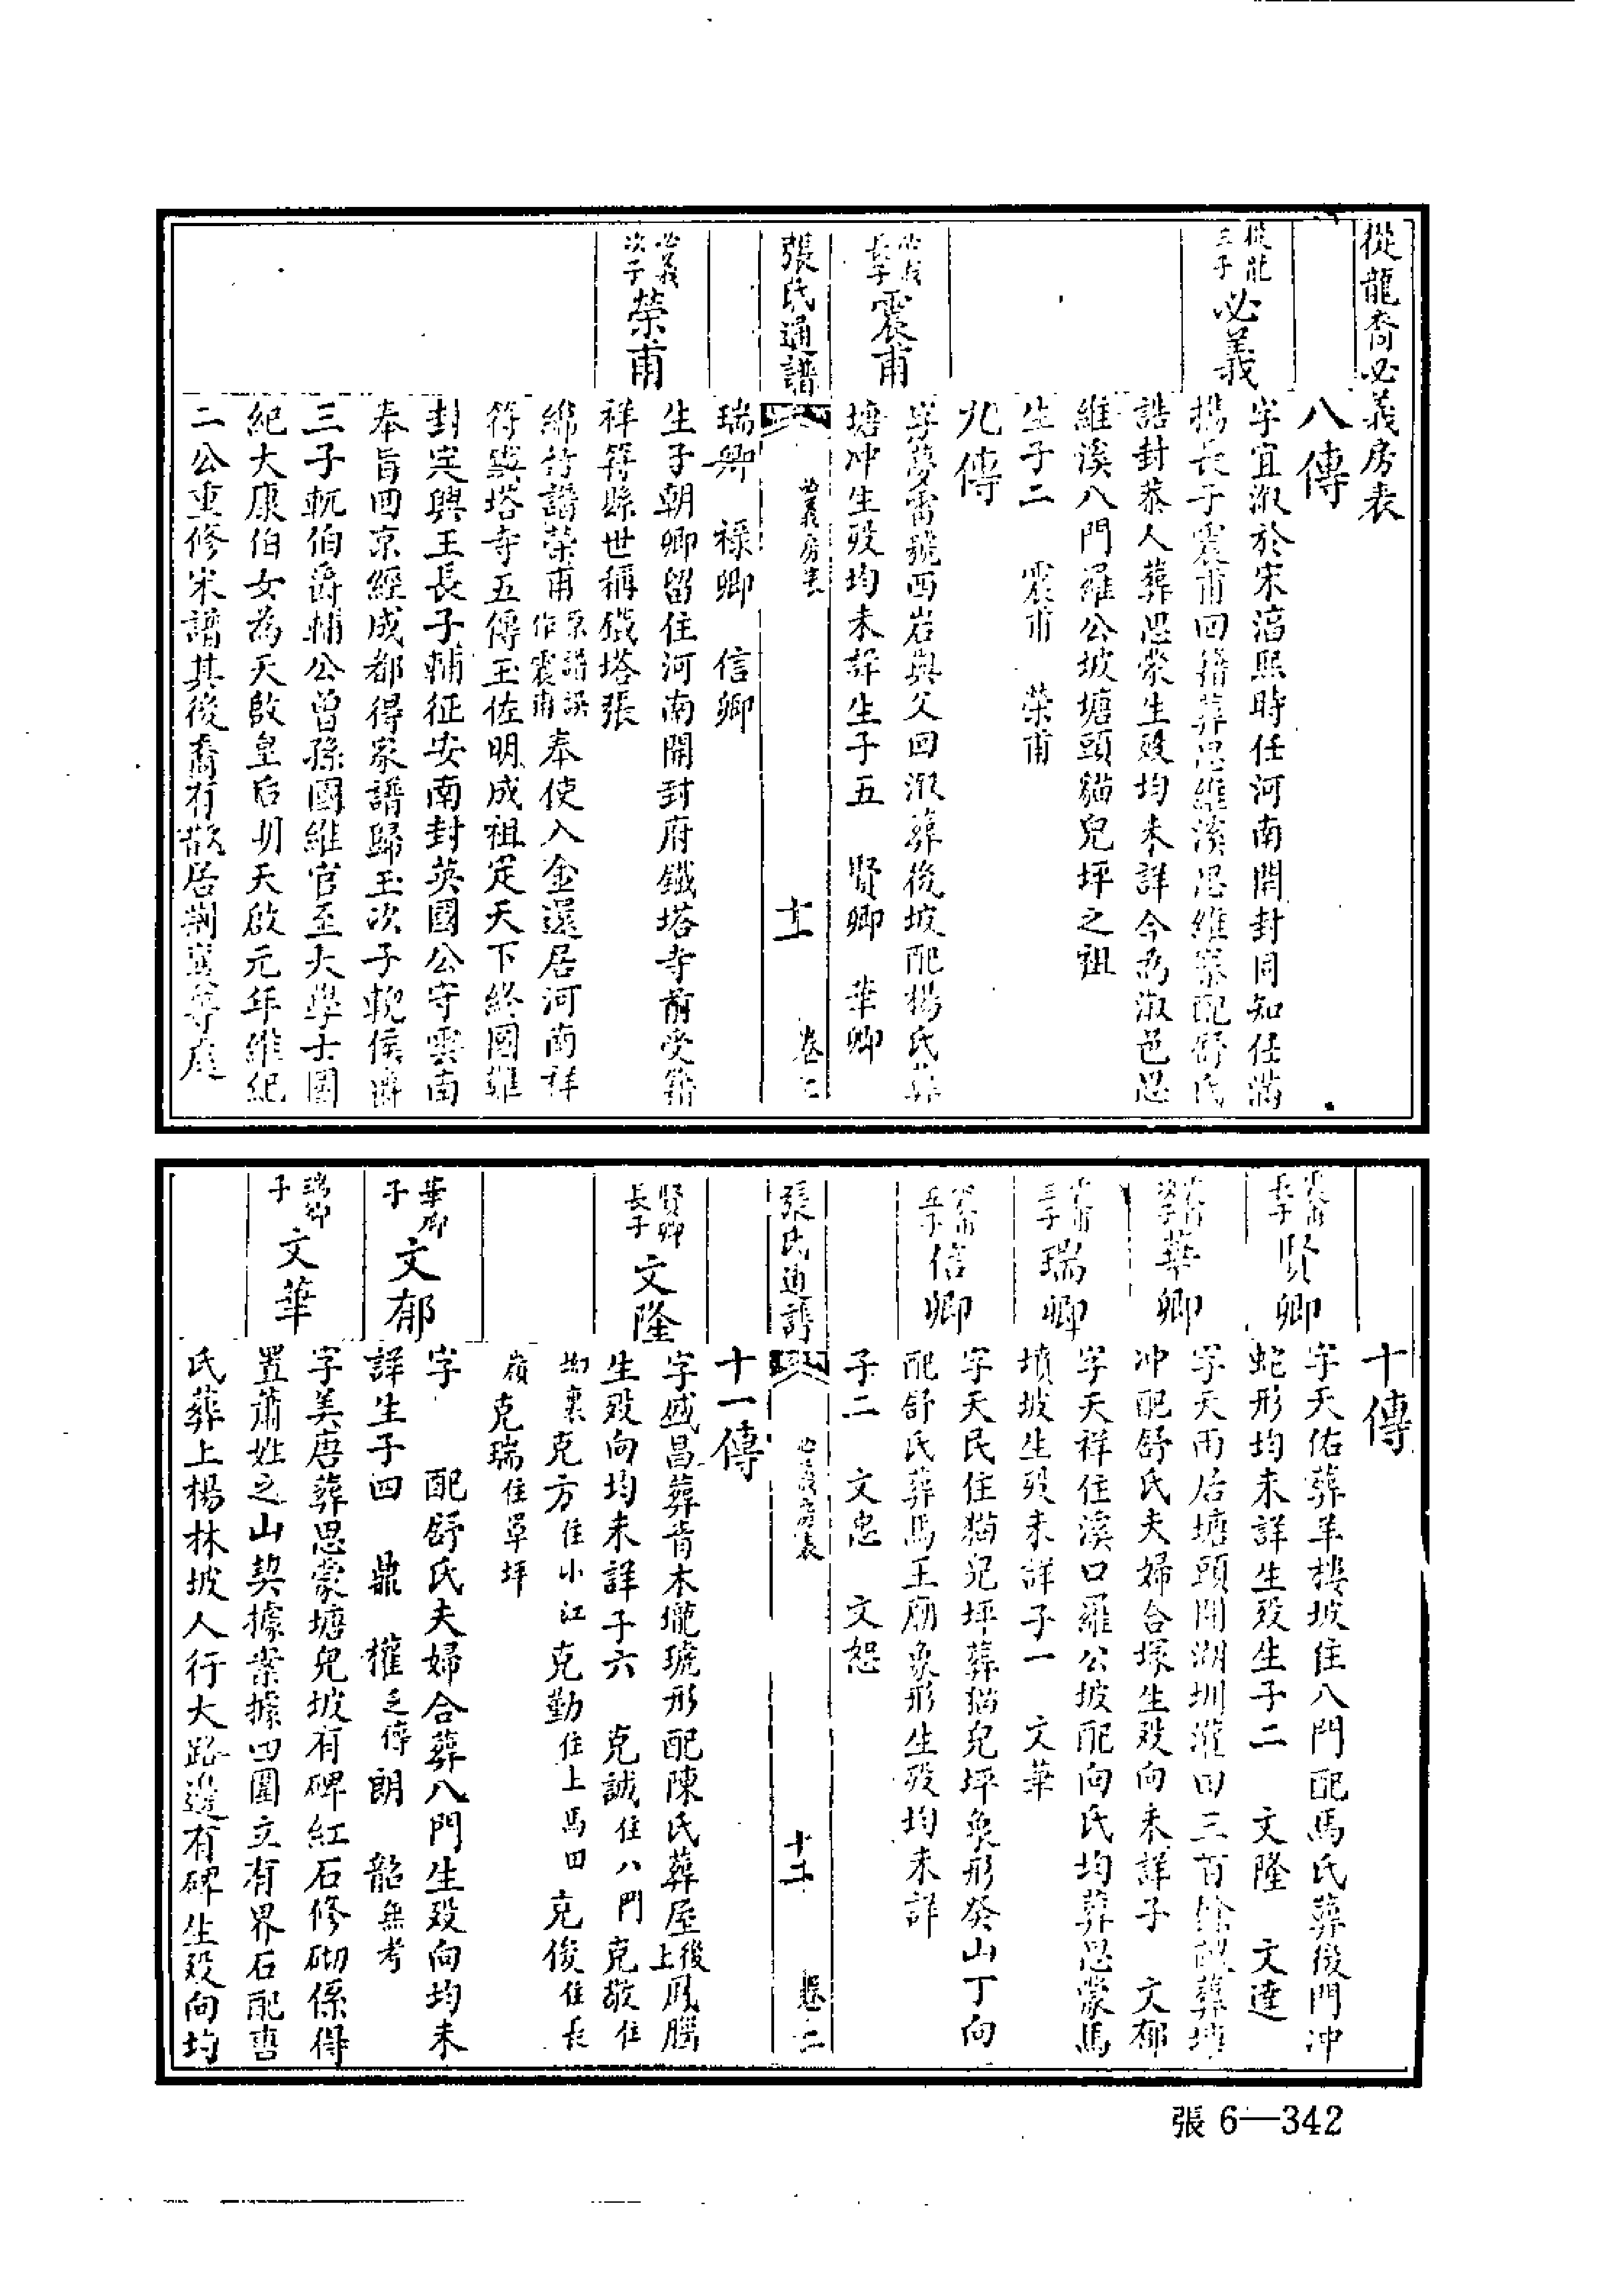 從龍裔必義房表
八傳
從龍
三子
必義
字宜溆於宋淳熙時任河南開封同知任滿
携長子震甫回籍葬思維溪思維寨配舒氏
誥封恭人葬思蒙生殁均未詳今為溆邑思
維溪八門羅公坡塘頭貓兒坪之祖
生子二 震甫 榮甫
九傳
必義
長子
震甫
字夢雷號西岩與父回溆葬後坡配楊氏葬
塘冲生殁均未詳生子五 賢卿 華卿
張氏通譜 必義房表 十一 卷二
瑞卿 祿卿 信卿
必義
次子
榮甫
生子朝卿留住河南開封府鐵塔寺前受籍
祥符縣世稱鐵塔張
綿竹譜榮甫
原譜誤
作震甫
奉使入金還居河南祥
符縣塔寺五傳玉佐明成祖定天下終國難
封定興王長子輔征安南封英國公守雲南
奉旨回京經成都得家譜歸玉次子軏侯爵
三子軏伯爵輔公曾孫國維官至大學士國
紀大康伯女為天啟皇后明天啟元年維紀
二公重修宋譜其後裔有散居荆冀等處
十傳
震甫
長子
賢卿
字天佑葬羊樓坡住八門配馬氏葬後門冲
蛇形均未詳生殁生子二 文隆 文達
華卿
字天雨居塘頭開湖圳灌田三百餘畝葬塘
冲配舒氏夫婦合塚生殁向未詳子 文郁
三子
瑞卿
字天祥住溪口羅公坡配向氏均葬思蒙馬
墳坡生殁未詳子一 文華
五子
信卿
字天民住猫兒坪葬猫兒坪象形癸山丁向
配舒氏葬馬王廟象形生殁均未詳
子二 文忠 文恕
張氏通譜 必義房表 十二 卷二
十一傳
賢卿
長子
文隆
字盛昌葬肯木壠琥形配陳氏葬屋後上鳳臘
生殁向均未詳子六 克誠住八門克敬住
坳裏克方住小江克勤住上馬田克俊住長
嶺克瑞住單坪
華卿
子
文郁
字 配舒氏夫婦合葬八門生殁向均未
詳生子四 鼎 權乏傳朗 韶無考
瑞卿
子
文華
字美唐葬思蒙塘兒坡有碑紅石修砌係得
置蕭姓之山契據案據四圍立有界石配曹
氏葬上楊林坡人行大路邊有碑生殁向均
張6—342